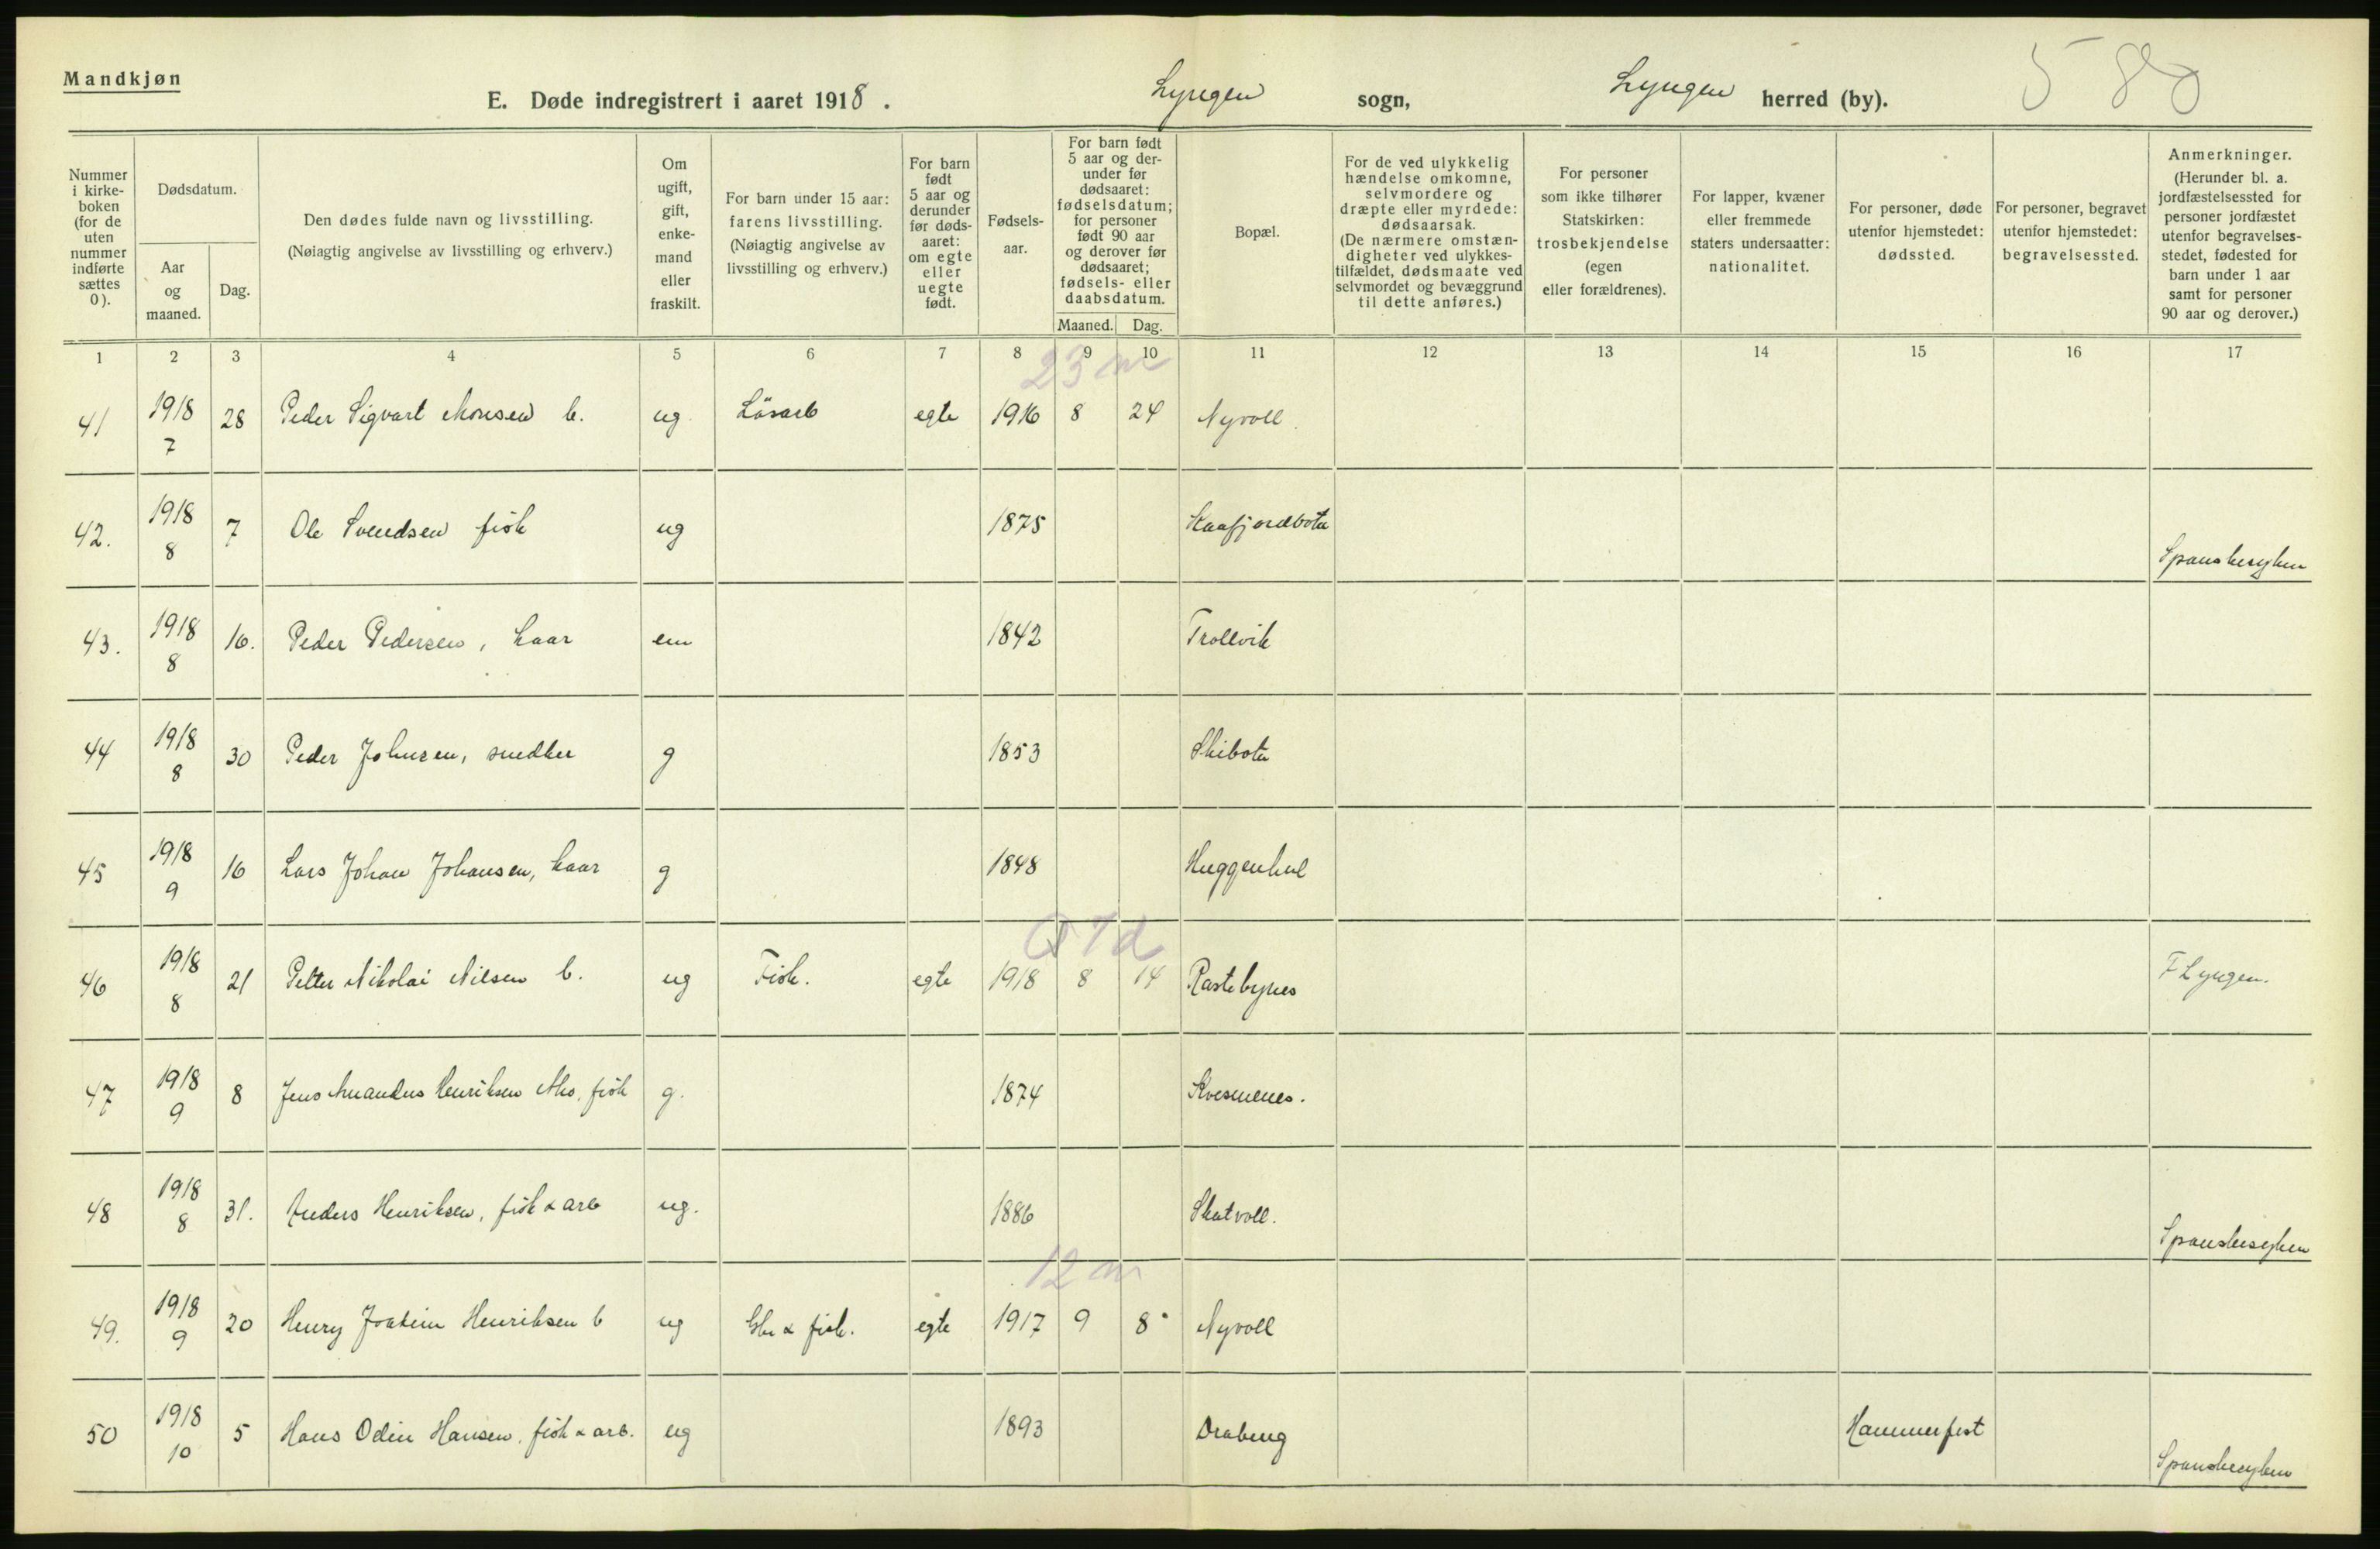 Mandkjøn
E. Døde indregistrert i aaret 1918. Lyngen sogn, Lyngen herred (by). 580
Nummer i kirke-boken (for de uten nummer indførte sættes 0).
Dødsdatum.
Aar og maaned.
Dag.
Den dødes fulde navn og livsstilling.
(Nøiagtig angivelse av livsstilling og erhverv.)
Om ugift, gift, enke-mand eller fraskilt.
For barn under 15 aar: farens livsstilling. (Nøiagtig angivelse av livsstilling og erhverv.)
For barn født 5 aar og derunder før døds-aaret: om egte eller uegte født.
Fødsels-aar.
For barn født 5 aar og der-under før dødsaaret: fødselsdatum; for personer født 90 aar og derover før dødsaaret; fødsels- eller daabsdatum.
Maaned. Dag.
Bopæl.
For de ved ulykkelig hændelse omkomne, selvmordere og dræpte eller myrdede: dødsaarsak. (De nærmere omstæn-digheter ved ulykkes-tilfældet, dødsmaate ved selvmordet og bevæggrund til dette anføres.)
For personer som ikke tilhører Statskirken: trosbekjendelse (egen eller forældrenes).
For lapper, kvæner eller fremmede staters undersaatter: nationalitet.
For personer, døde utenfor hjemstedet: dødssted.
For personer, begravet utenfor hjemstedet: begravelsessted.
Anmerkninger. (Herunder bl. a. jordfæstelsessted for personer jordfæstet utenfor begravelses-stedet, fødested for barn under 1 aar samt for personer 90 aar og derover.)
1 2 3 4 5 6 7 8 9 10 11 12 13 14 15 16 17
23 m
41 1918 7 28 Peder Sigvart Monsen b. ug. Lösarb egte 1916 8 24 Nyvoll.
42. 1918 8 7 Ole Svendsen fisk ug 1875 Kaafjordbotn Spansbesyken
43. 1918 8 16. Peder Pedersen, kaar em 1842 Trollvik
44 1918 8 30 Peder Johnsen, snedker g 1853 Skibotn
45 1918 9 16 Lars Johan Johansen, kaar g 1848
7 d
46 1918 8 21 Petter Nikolai Nilsen b. ug Fisk. egte 1918 8 14 Rastebynes F Lyngen.
47 1918 9 8 Jens Amandus Henriksen fisk g. 1874 Kvesmenes.
48 1918 8 31. Anders Henriksen, fisk & arb ug. 1886 Skatvoll.
12 m
49. 1918 9 20 Henry Joakim Henriksen b ug Gbr & fisk. egte 1917 9 8 Nyvoll
50 1918 10 5 Hans Odin Hansen, fisk & arb. ug 1893 Hammerfest